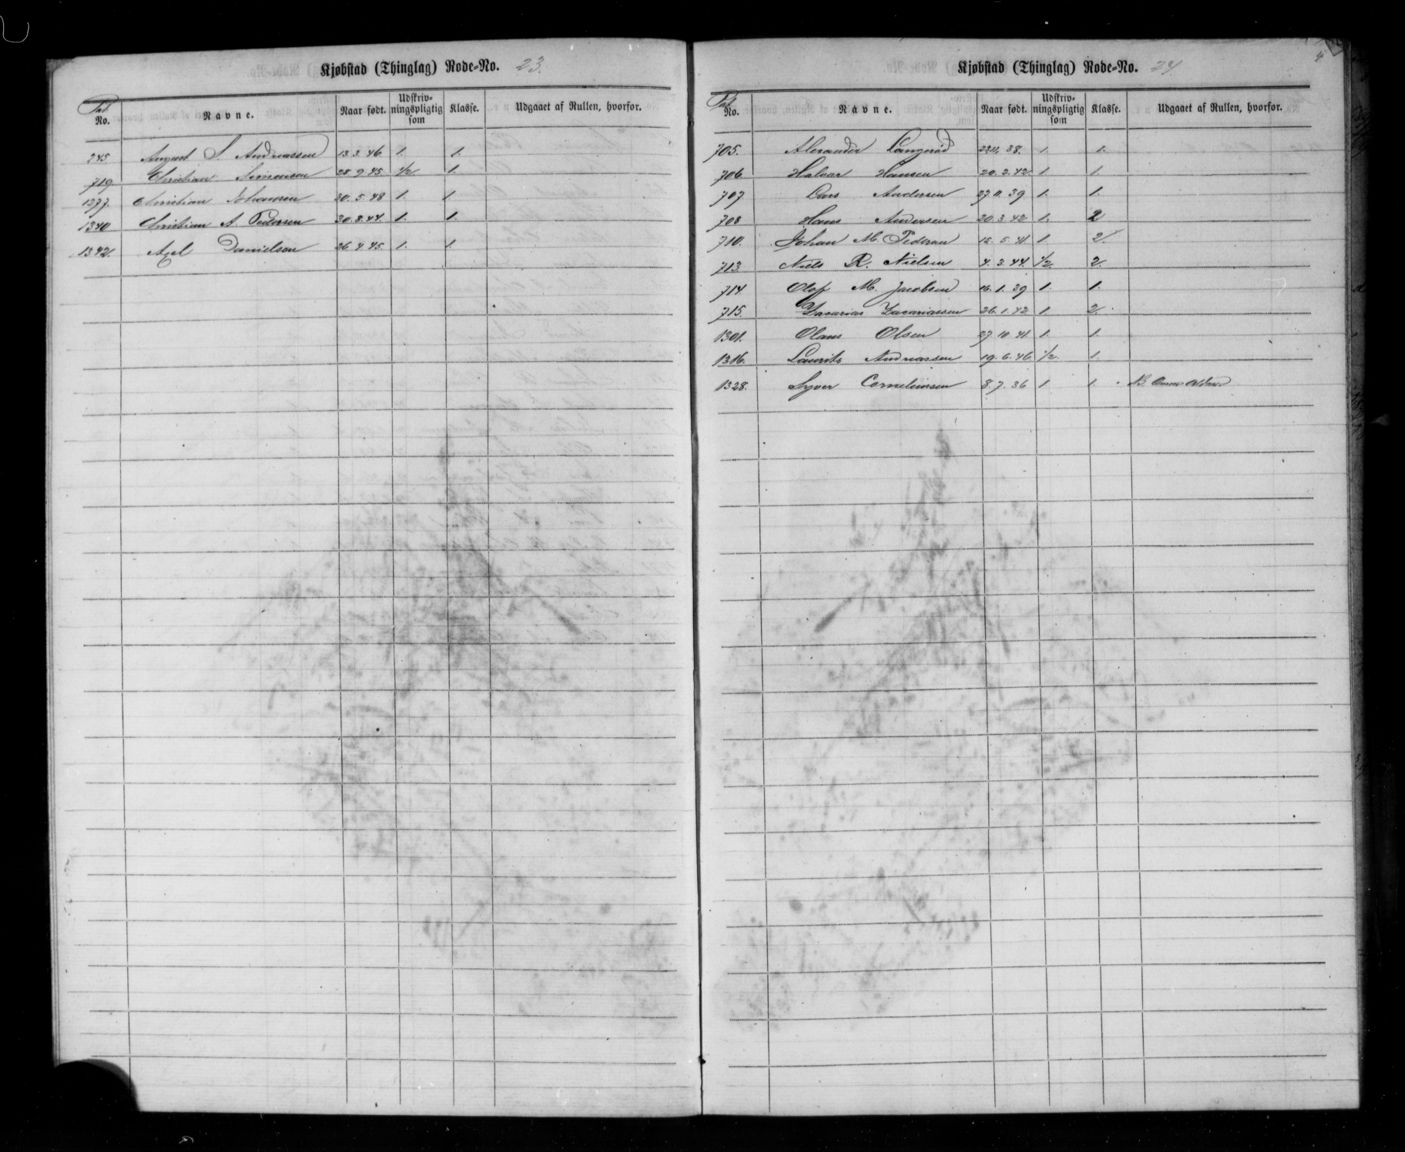 Kjøbstad (Thinglag) Rode-No. 23.
No. Navne. Naar født. Udskriv-ningspligtig som Klasse. Udgaaet af Rullen, hvorfor.
745 August S. Andreassen 13.3.46 1. 1.
719 Christian Simonsen 28.9.45 1/2 1
1277. Christian Johansen 30.5.48 1. 1
1340 Christian A. Pedersen 30.8.44. 1. 1
1342. Axel Danielsen 26.4.45 1. 1.
Kjøbstad (Thinglag) Rode-No. 24
4
No. Navne. Naar født. Udskriv-ningspligtig som Klasse. Udgaaet af Rullen, hvorfor.
705. Alexander 38. 1. 1.
706 Halvor Hansen 20.2.42 1. 1.
707 Lars Andersen 39 1. 1.
708 Hans Andersen 20.3.42 1. 2
710. Johan M. Pedersen 15.5.41 1 2
713 Niels R. Nielsen 4.3.44 1/2. 2.
714 Olof M. Jacobsen 16.1.39 1. 1.
715. Zacarias Zacariassen 26.1.42 1. 2.
1301. Olaus Olsen 27.10.41 1. 1.
1316. Laurits Andreassen 19.6.46 1/2. 1.
1328. Syver Corneliussen 8.7.36 1 1